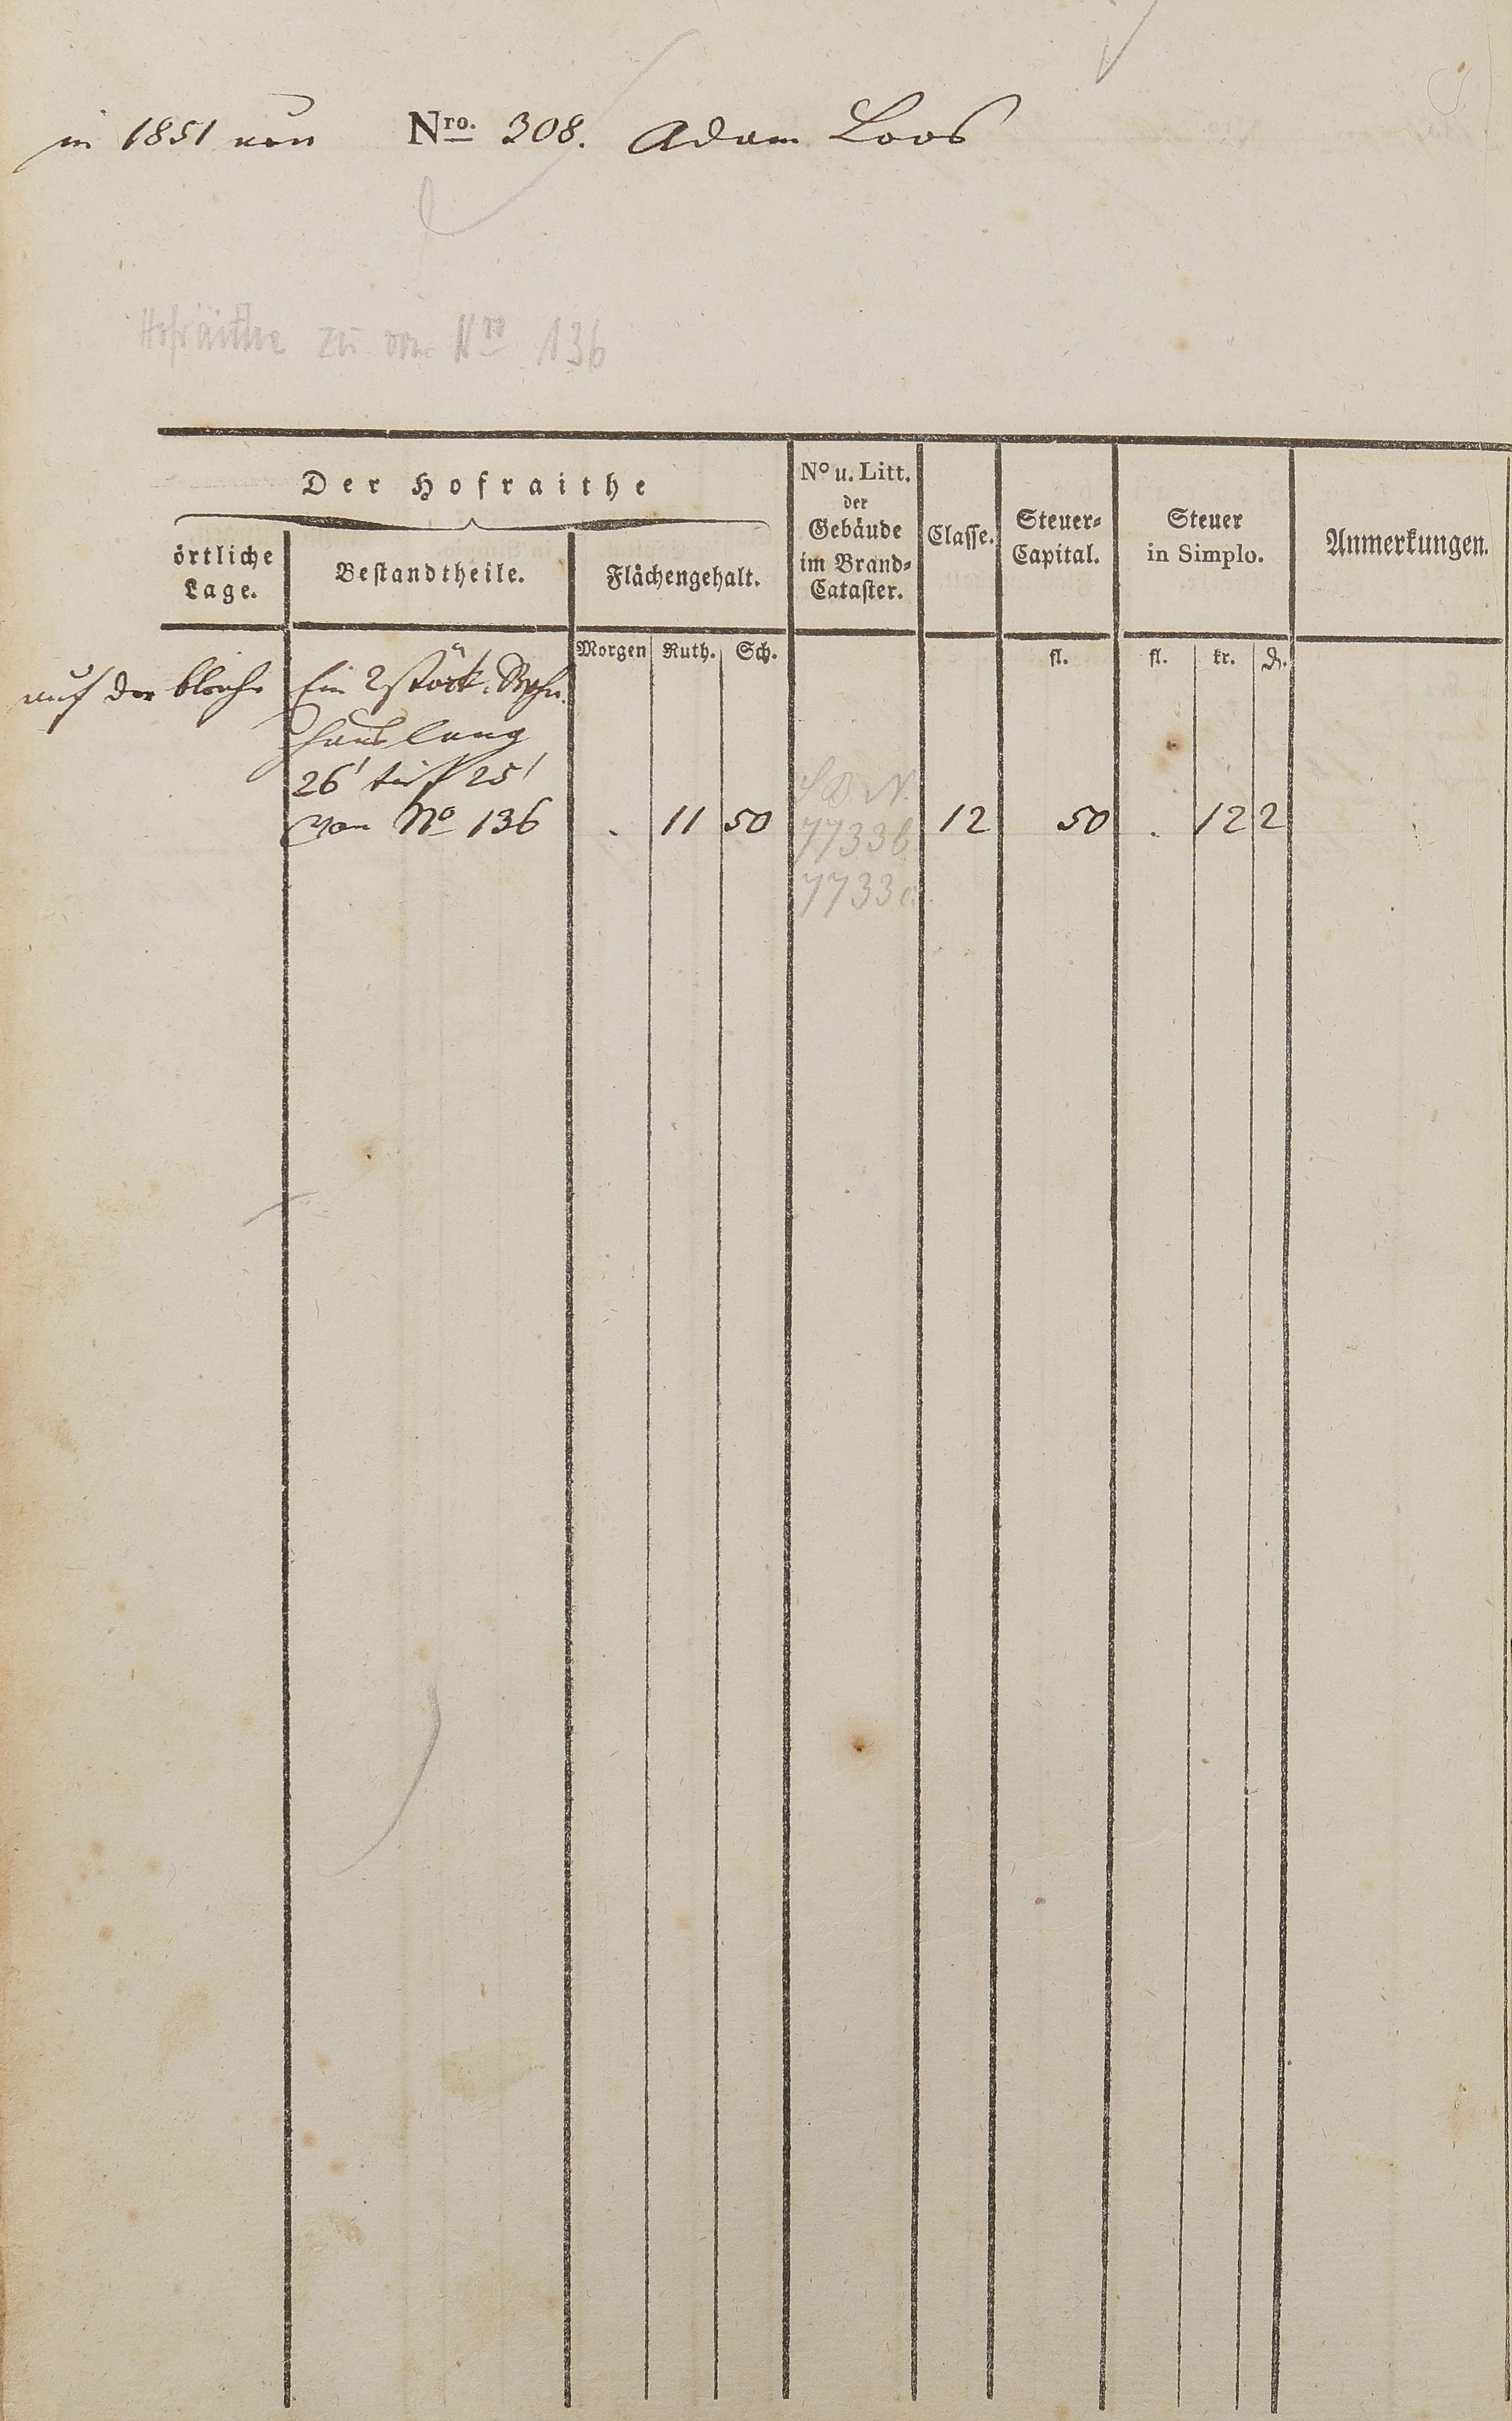 in 1851 neu Nro. 308. Adam Loos
Hofraithe zu von Nro 136
Der Hofraithe
örtliche Lage.
Bestandtheile.
Flächengehalt.
No u. Litt. der Gebäude im Brand-Cataster.
Classe.
Steuer-Capital.
Steuer in Simplo.
Anmerkungen.
Morgen Ruth. Sch. fl. fl. kr. d.
auf der bleiche Ein 2stöck. Wohn-
haus lang
26' tief 25'
von No 136 . 11 50 7733b 12 50 . 12 2
7733c